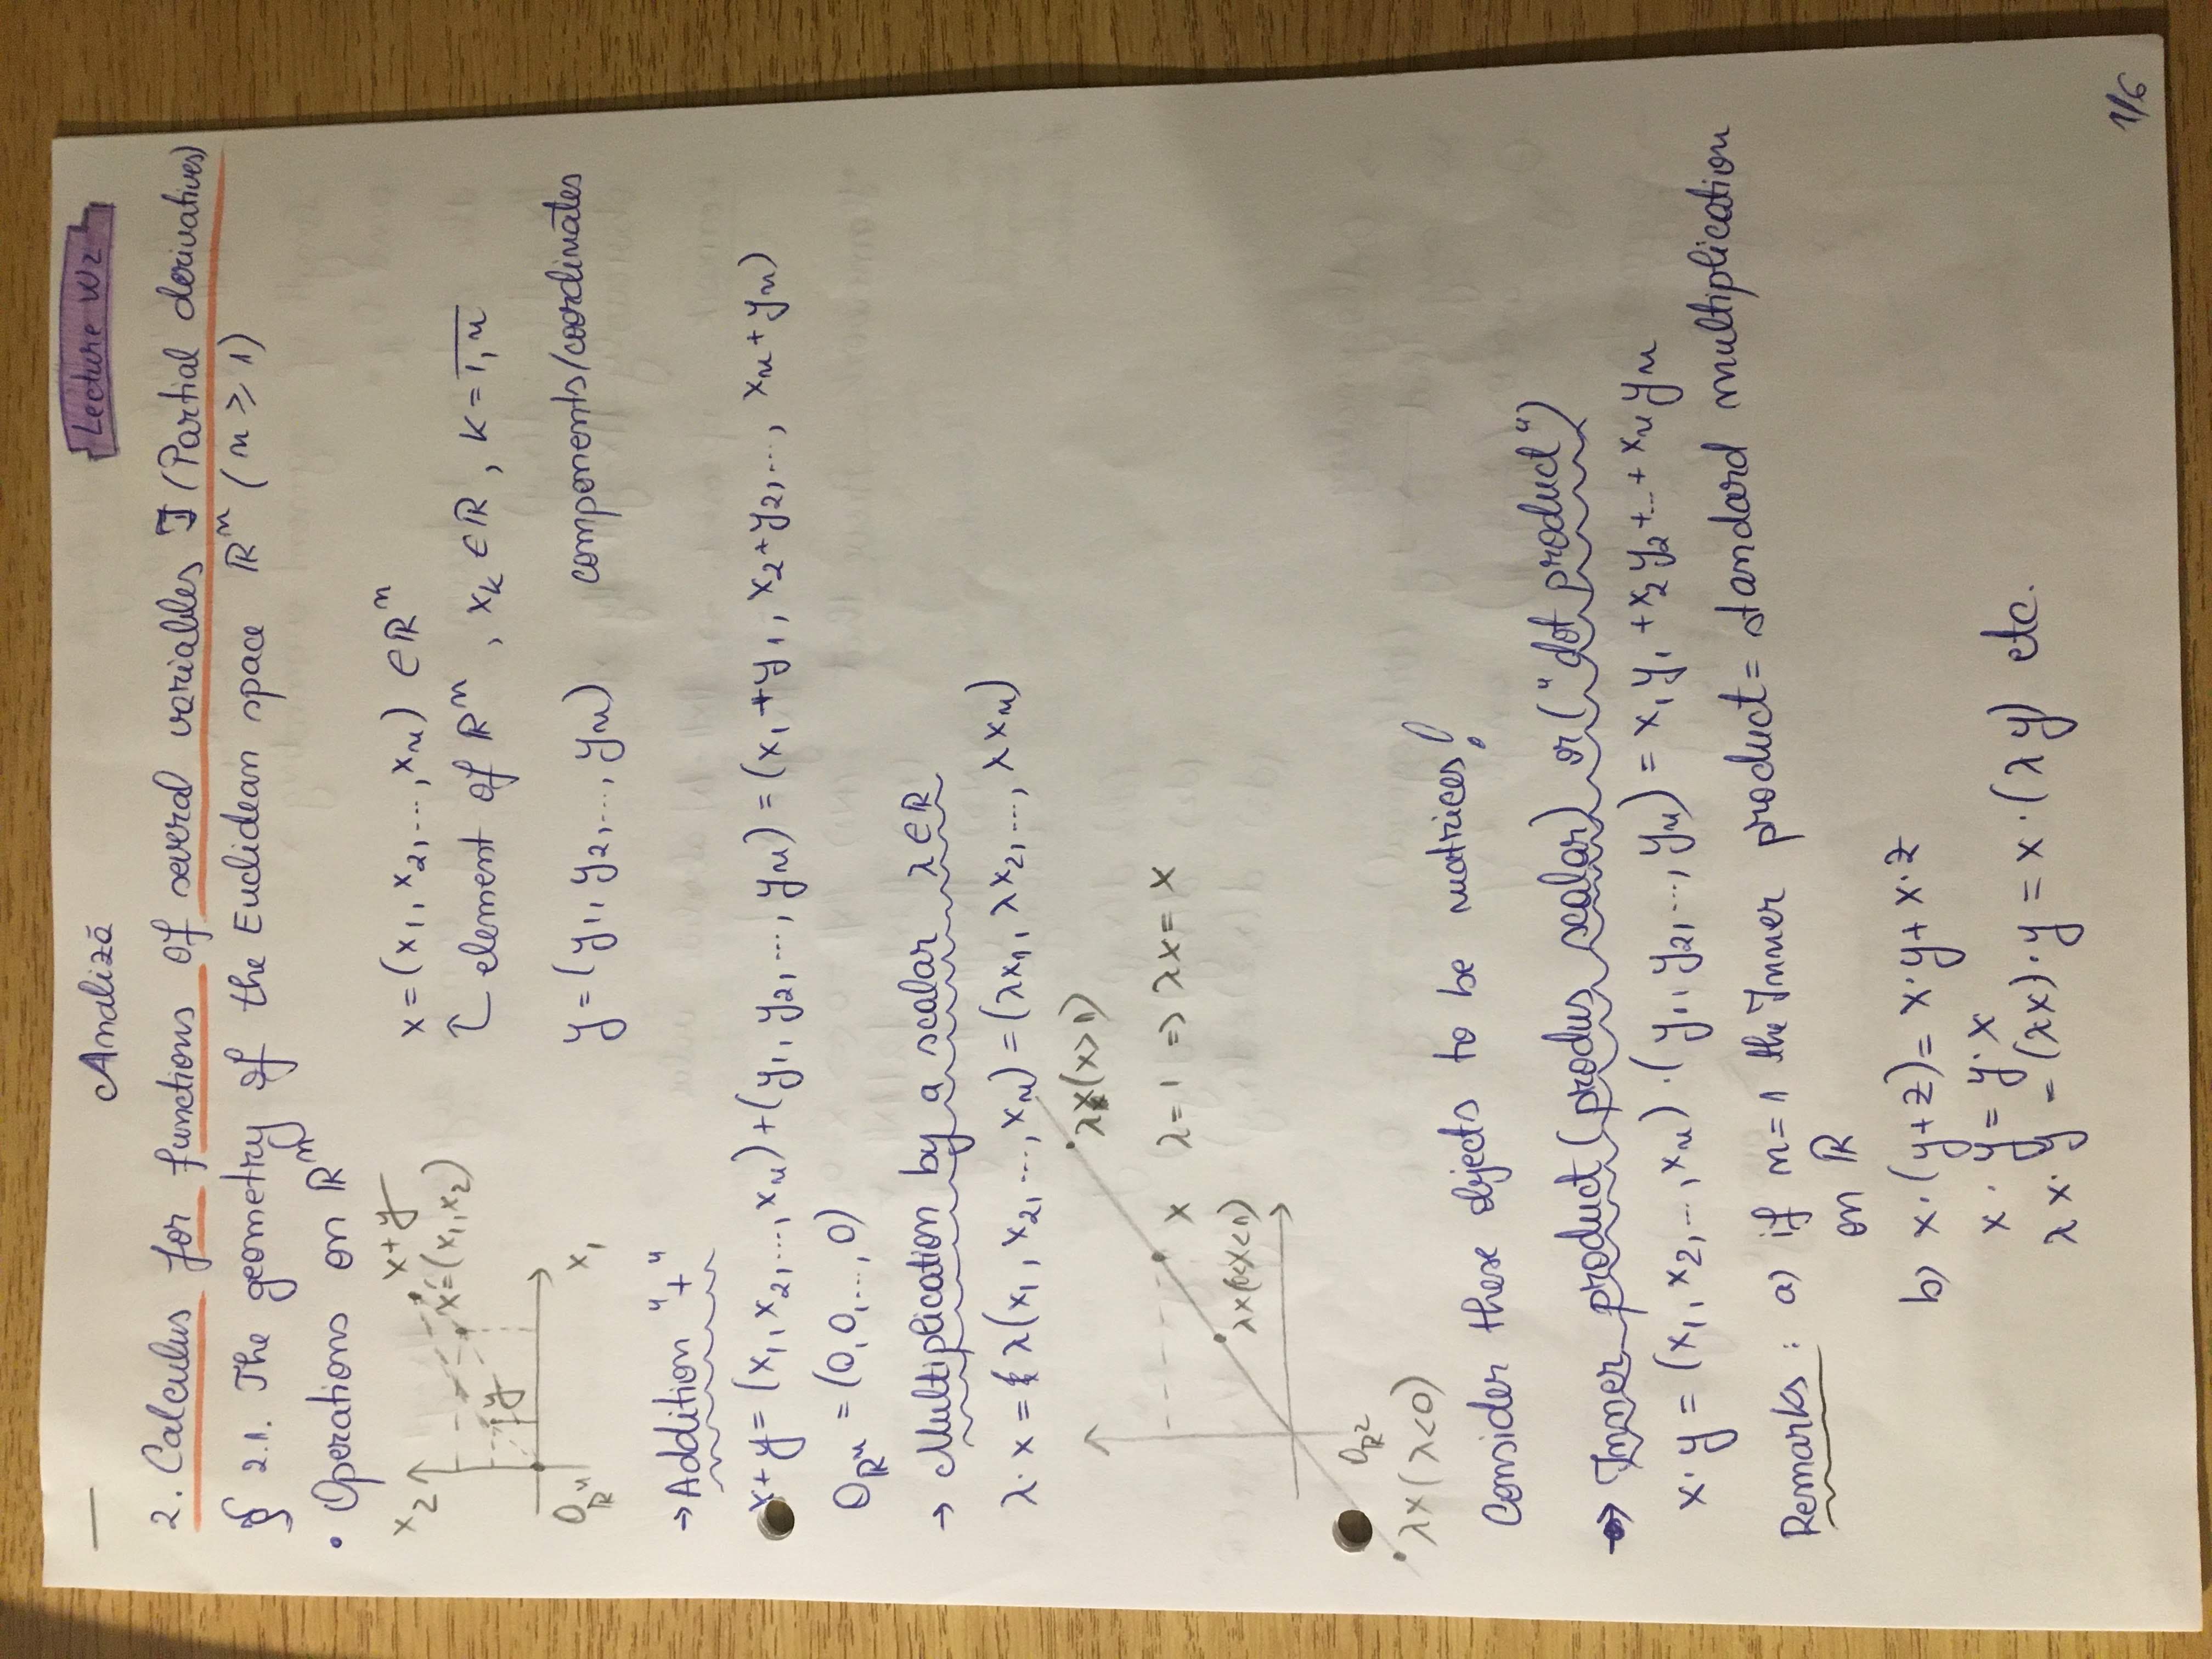 Analiză
Lecture W2
2. Calculus for functions of several variables I (Partial derivatives)
§ 2.1. The geometry of the Euclidean space ℝⁿ (n ≥ 1)
• Operations on ℝⁿ
x₂
x+y
x=(x₁,x₂)
y
0_ℝⁿ
x₁
x=(x₁, x₂,..., xₙ) ∈ℝⁿ
↑ element of ℝⁿ, xₖ ∈ ℝ, k = \overline{1,n}
y=(y₁, y₂,..., yₙ) components/coordinates
→ Addition "+"
x+y= (x₁, x₂,..., xₙ)+(y₁, y₂, ..., yₙ) = (x₁+y₁, x₂+y₂,..., xₙ+yₙ)
0_ℝⁿ = (0,0,...,0)
→ Multiplication by a scalar λ∈ℝ
λ· x = λ(x₁, x₂,...,xₙ)=(λx₁, λx₂,..., λxₙ)
λx(x>1)
x λ=1 => λx= x
λx(0<x<1)
0_ℝ²
λx(λ<0)
Consider these objects to be matrices!
→ Inner product (produs scalar) or ("dot product")
x·y = (x₁, x₂,..., xₙ)·(y₁, y₂,..., yₙ) = x₁y₁ +x₂y₂+...+ xₙyₙ
Remarks: a) if n=1 the Inner product= standard multiplication
on ℝ
b) x·(y+z)= x·y+x·z
x·y= y·x
λx·y = (λx)·y = x·(λy) etc.
1/6